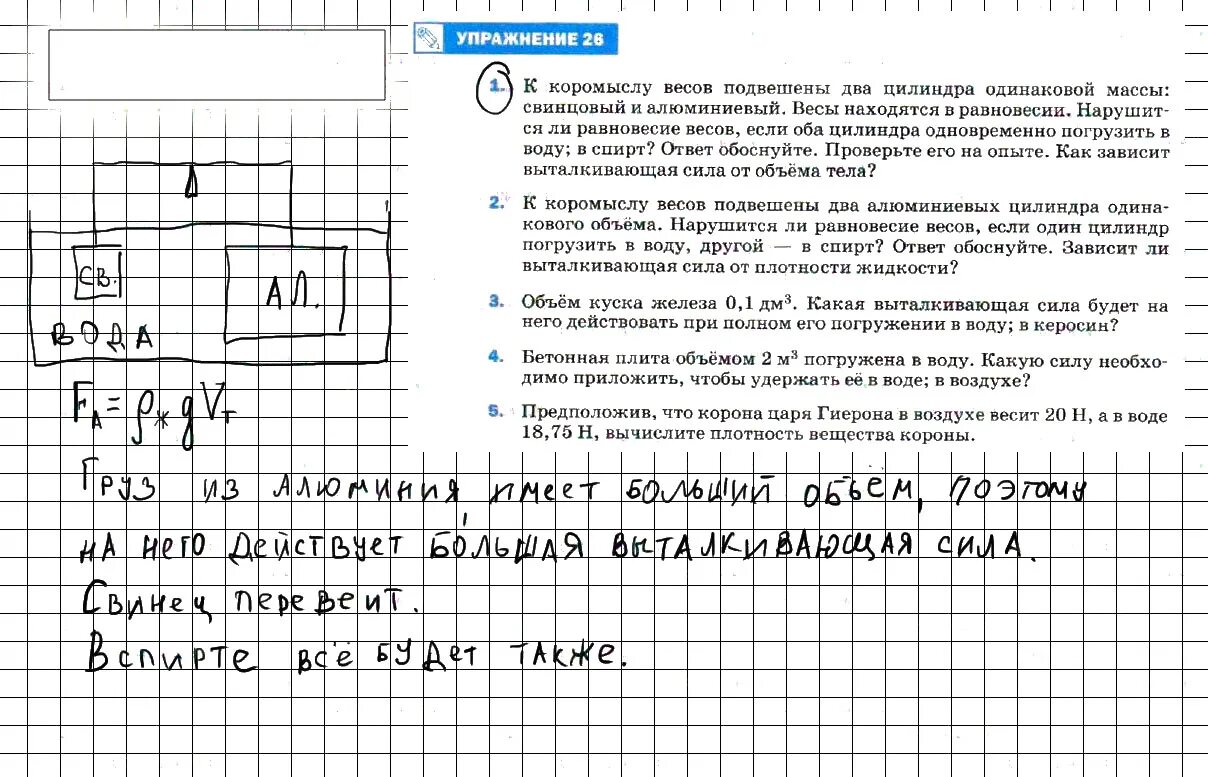 УПРАЖНЕНИЕ 26
1. К коромыслу весов подвешены два цилиндра одинаковой массы:
свинцовый и алюминиевый. Весы находятся в равновесии. Нарушит-
ся ли равновесие весов, если оба цилиндра одновременно погрузить в
воду; в спирт? Ответ обоснуйте. Проверьте его на опыте. Как зависит
выталкивающая сила от объёма тела?
2. К коромыслу весов подвешены два алюминиевых цилиндра одина-
кового объёма. Нарушится ли равновесие весов, если один цилиндр
погрузить в воду, другой — в спирт? Ответ обоснуйте. Зависит ли
выталкивающая сила от плотности жидкости?
3. Объём куска железа 0,1 дм³. Какая выталкивающая сила будет на
него действовать при полном его погружении в воду; в керосин?
4. Бетонная плита объёмом 2 м³ погружена в воду. Какую силу необхо-
димо приложить, чтобы удержать её в воде; в воздухе?
5. Предположив, что корона царя Гиерона в воздухе весит 20 Н, а в воде
18,75 Н, вычислите плотность вещества короны.
СВ.
АЛ.
ВОДА
FА = ρж g Vт
Груз из алюминия имеет больший объём, поэтому
на него действует бо́льшая выталкивающая сила.
Свинец перевеит.
В спирте всё будет также.